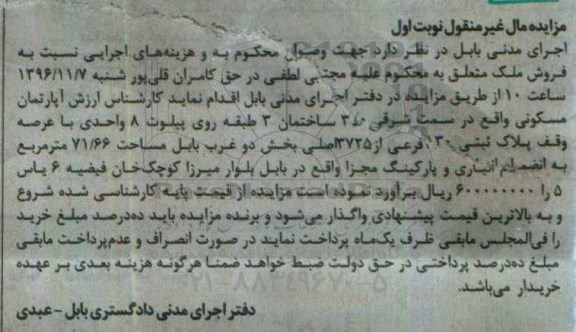 مزایده مال غیر منقول نوبت اول
اجرای مدنی بابل در نظر دارد جهت وصول محکوم به و هزینه‌های اجرایی نسبت به
فروش ملک متعلق به محکوم علیه مجتبی لطفی در حق کامران قلی‌پور شنبه ۱۳۹۶/۱۱/۷
ساعت ۱۰ از طریق مزایده در دفتر اجرای مدنی بابل اقدام نماید کارشناس ارزش آپارتمان
مسکونی واقع در سمت شرقی ط ۳ ساختمان ۳ طبقه روی پیلوت ۸ واحدی با عرصه
وقف پلاک ثبتی ۱۳۰ فرعی از ۳۷۲۵ اصلی بخش دو غرب بابل مساحت ۷۱/۶۶ مترمربع
به انضمام انباری و پارکینگ مجزا واقع در بابل بلوار میرزا کوچک‌خان فیضیه ۶ یاس
۵ را ۶۰۰۰۰۰۰۰۰ ریال برآورد نموده است مزایده از قیمت پایه کارشناسی شده شروع
و به بالاترین قیمت پیشنهادی واگذار می‌شود و برنده مزایده باید ده‌درصد مبلغ خرید
را فی‌المجلس مابقی ظرف یک‌ماه پرداخت نمایند در صورت انصراف و عدم‌پرداخت مابقی
مبلغ ده‌درصد پرداختی در حق دولت ضبط خواهد ضمنا هرگونه هزینه بعدی بر عهده
خریدار می‌باشد.
۰۲۱-۸۸۳۴۹۶۷۰-۵
دفتر اجرای مدنی دادگستری بابل - عبدی